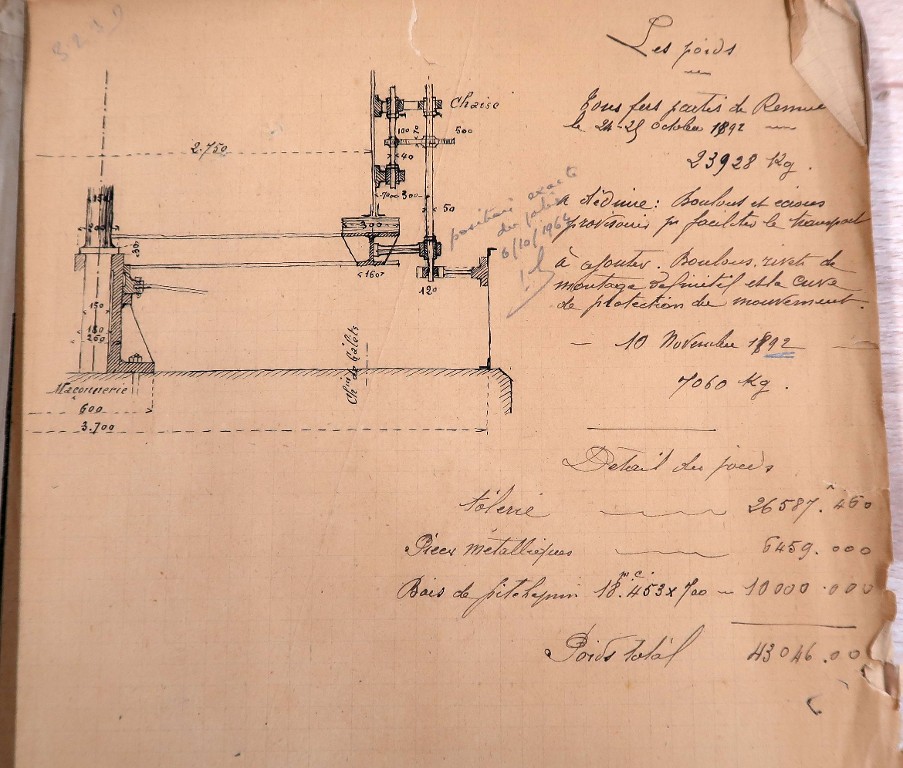 3239
Les poids
Tous fers partis de Rennes
le 24-25 Octobre 1892
23928 Kg.
A déduire: Boulons et écrous
provisoires pr faciliter le transport
à ajouter. Boulons, rivets de
montage définitif et la cuve
de protection du mouvement.
- 10 Novembre 1892 -
7060 Kg.
Détail du poids
tôlerie 26587.460
Pièces métalliques 6459.000
Bois de pitchpin 18.m.c.453 x 700 - 10000.000
Poids total 43046.00
Chaise
2.750
100
70
500
40
300
50
position exacte
du galet
6/10/1964
300
160
120
30
150
260
Chin de Galets
Maçonnerie
600
3.700